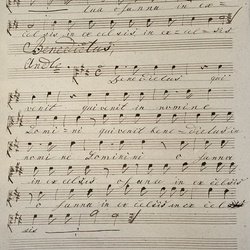 tua osanna in ex=
celsis in excelsis in ex=cel=sis
Benedictus
Andte
Benedictus qui
venit qui venit in nomine
Domi=ni qui venit bene=dictus in
nomine Domini o sanna
in excelsis osanna in excelsis
o sanna in excelsis in excel=
sis